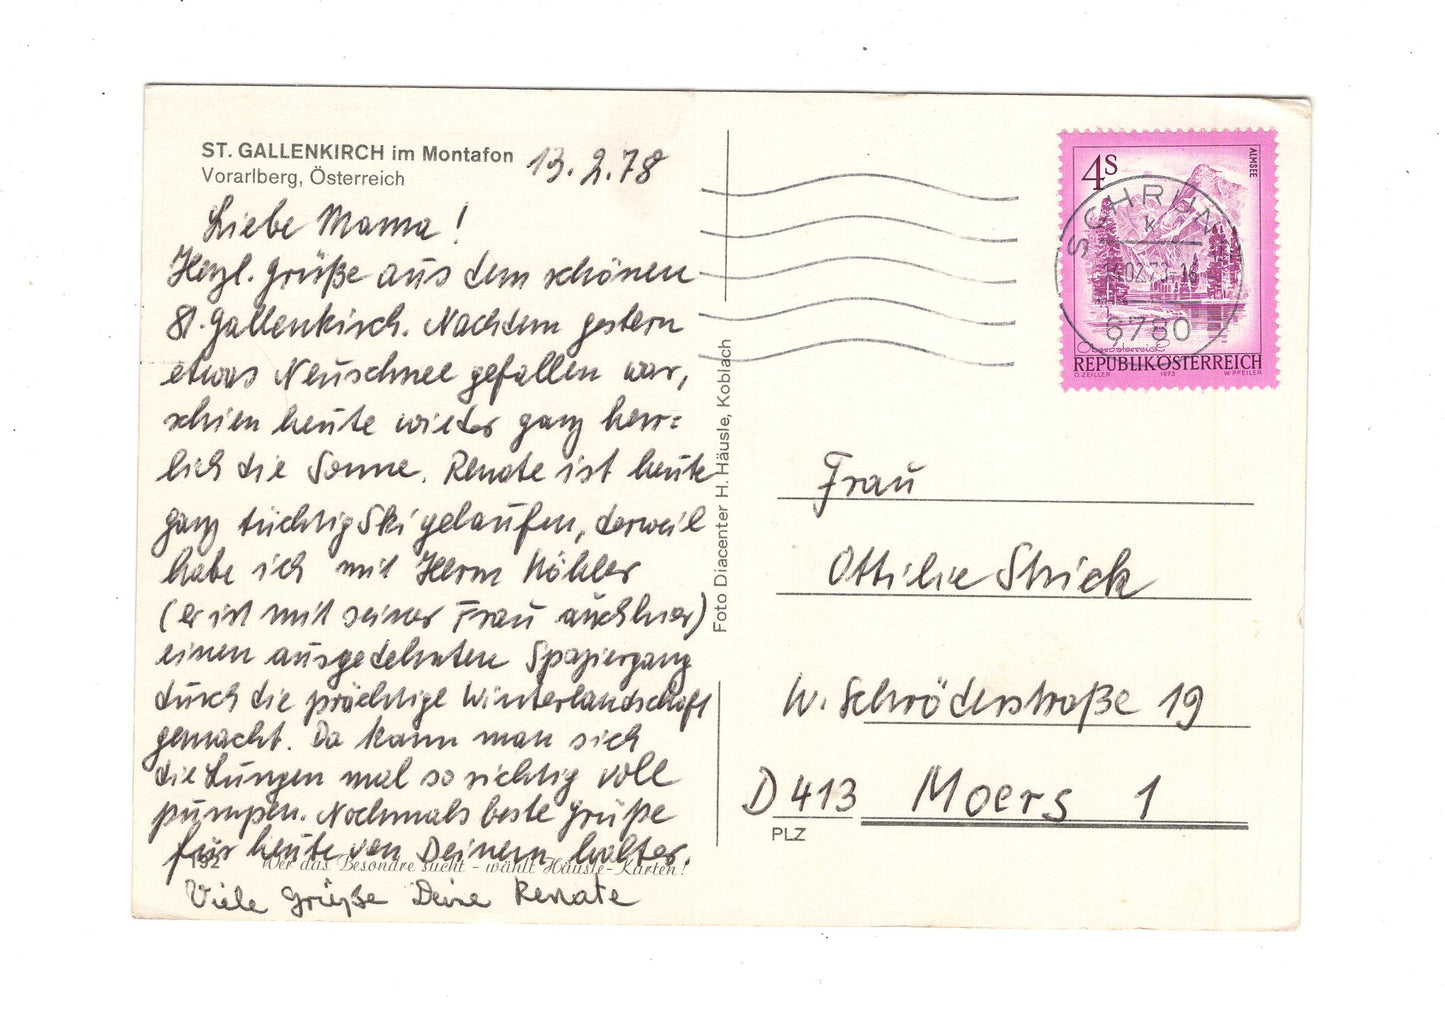 ST. GALLENKIRCH im Montafon
Vorarlberg, Österreich
13.2.78
Liebe Mama!
Herzl. Grüße aus dem schönen
St. Gallenkirch. Nachdem gestern
etwas Neuschnee gefallen war,
schien heute wieder ganz herr=
lich die Sonne. Renate ist heute
ganz tüchtig Ski gelaufen, derweil
habe ich mit Herrn Köhler
(er ist mit seiner Frau auch hier)
einen ausgedehnten Spaziergang
durch die prächtige Winterlandschaft
gemacht. Da kann man sich
die Lungen mal so richtig voll
pumpen. Nochmals beste Grüße
für heute von Deinem Walter.
192 Wer das Besondre sucht - wählt Häusle-Karten!
Viele Grüße Deine Renate
Foto Diacenter H. Häusle, Koblach
4S
ALMSEE
SCHRUNS
k
02.78-16
6780
Oberösterreich
REPUBLIK ÖSTERREICH
O. ZEILLER 1973 W. PFEILER
Frau
Ottilie Strick
W. Schröderstraße 19
D 413 Moers 1
PLZ